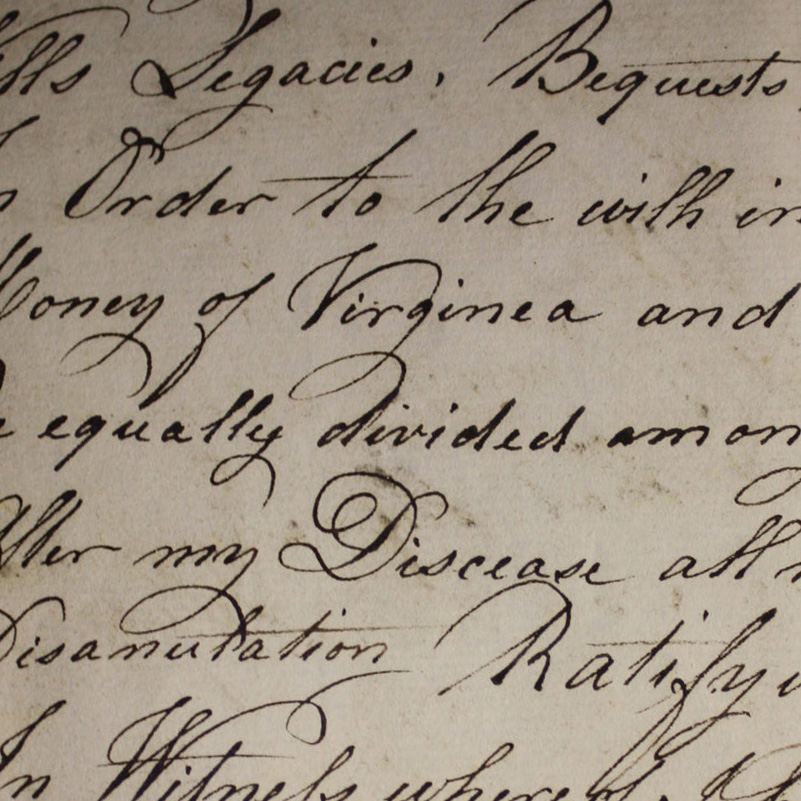 ills Legacies, Bequests,
Order to the with in
Money of Virginea and
equally divided among
After my Discease all
Disanulation Ratifyi
In Witness whereof, I